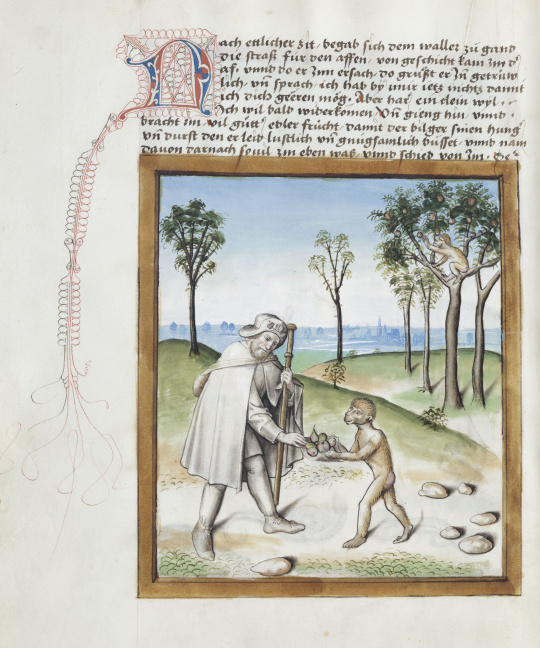 Nach ettlicher zit, begab sich dem waller zu gand
die straß für den affen, von geschicht kam im d
aff, vnnd do er Inn ersach, do grüßt er In getrüw
lich, vn̄ sprach, ich hab by mir ietz nichtz damit
ich dich geeren mög, Aber har ein clein wyl,
Ich wil bald widerkomen, Vn̄ gieng hin, vnnd
bracht im vil gůtter edler frücht, damit der bilger sinen hung
vn̄ durst den er leid lustlich vn̄ gnůgsamlich bůsset, vnnd nam
dauon darnach souil im eben was, vnnd schied von Im,